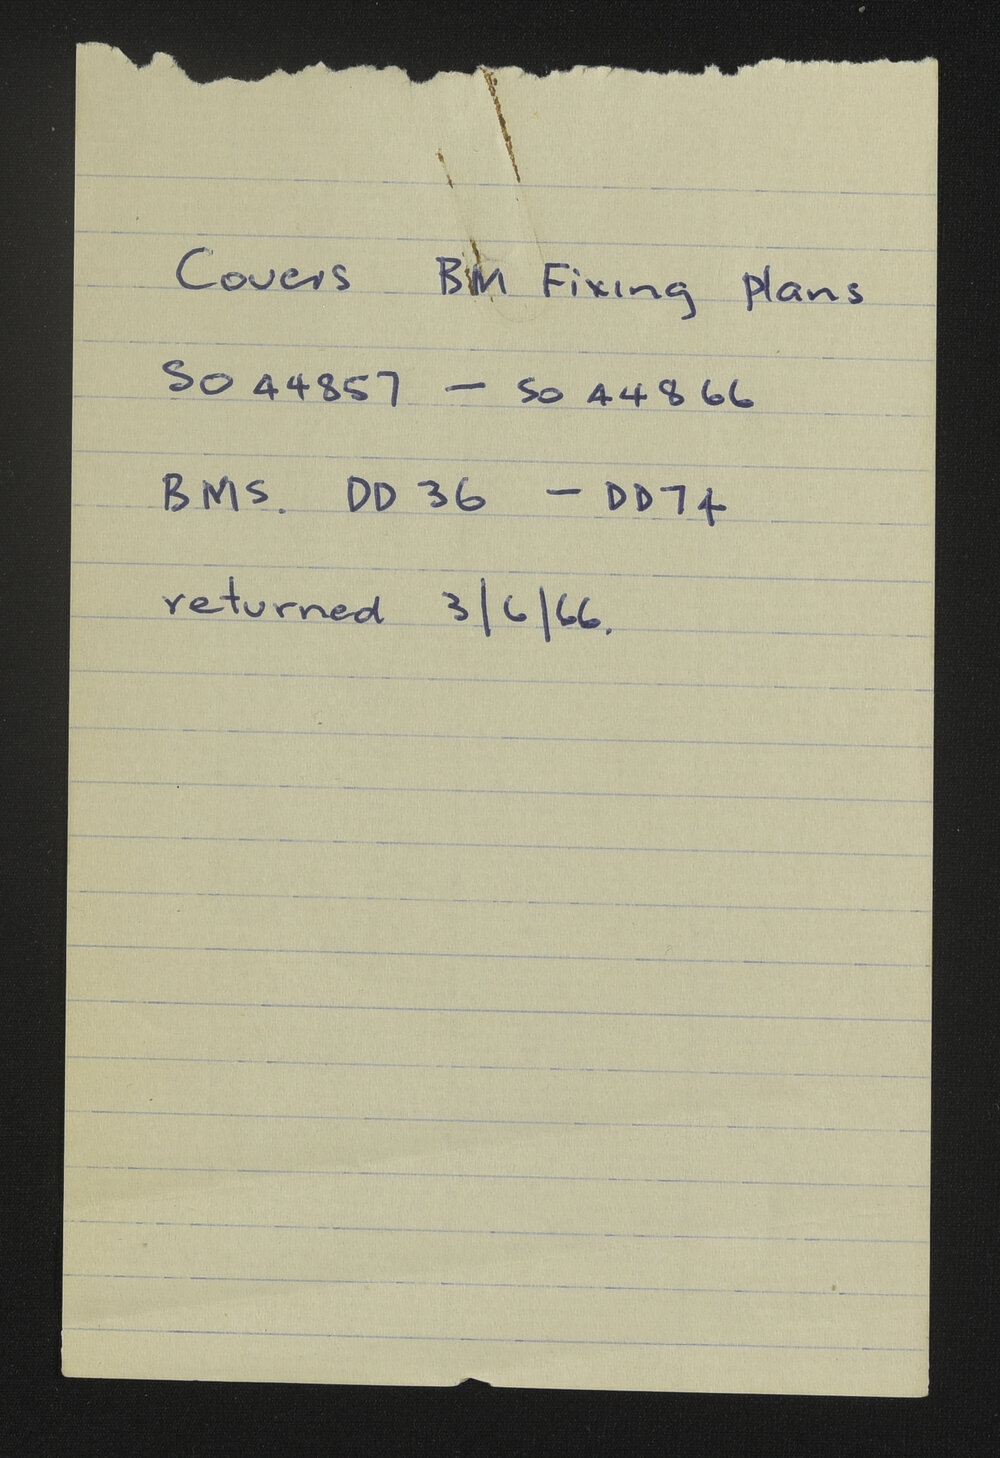 Covers BM Fixing plans
SO 44857 - SO 44866
BMS. DD 36 - DD74
returned 3/6/66.